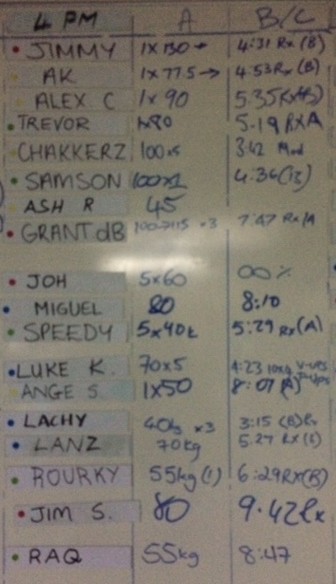 4 PM A B/C
JIMMY 1x130 → 4:31 Rx (B)
AK 1x77.5 → 4:53 Rx (B)
ALEX C 1x90 5:35
TREVOR 1x80 5:19 RXA
CHAKKERZ 100x5 3:42 Mod
SAMSON 100x2 4:36
ASH R 45
GRANT dB x3 7:47 Rx/A
JOH 5x60 00%
MIGUEL 80 8:10
SPEEDY 5x40k 5:29 Rx (A)
LUKE K. 70x5 4:23
ANGE S. 1x50 8:07 (A)
LACHY 60kg x3 3:15 (B)Rx
LANZ 70kg 5:27 Rx
ROURKY 55kg (1) 6:29 RX(B)
JIM S. 80 9:42 Rx
RAQ 55kg 8:47